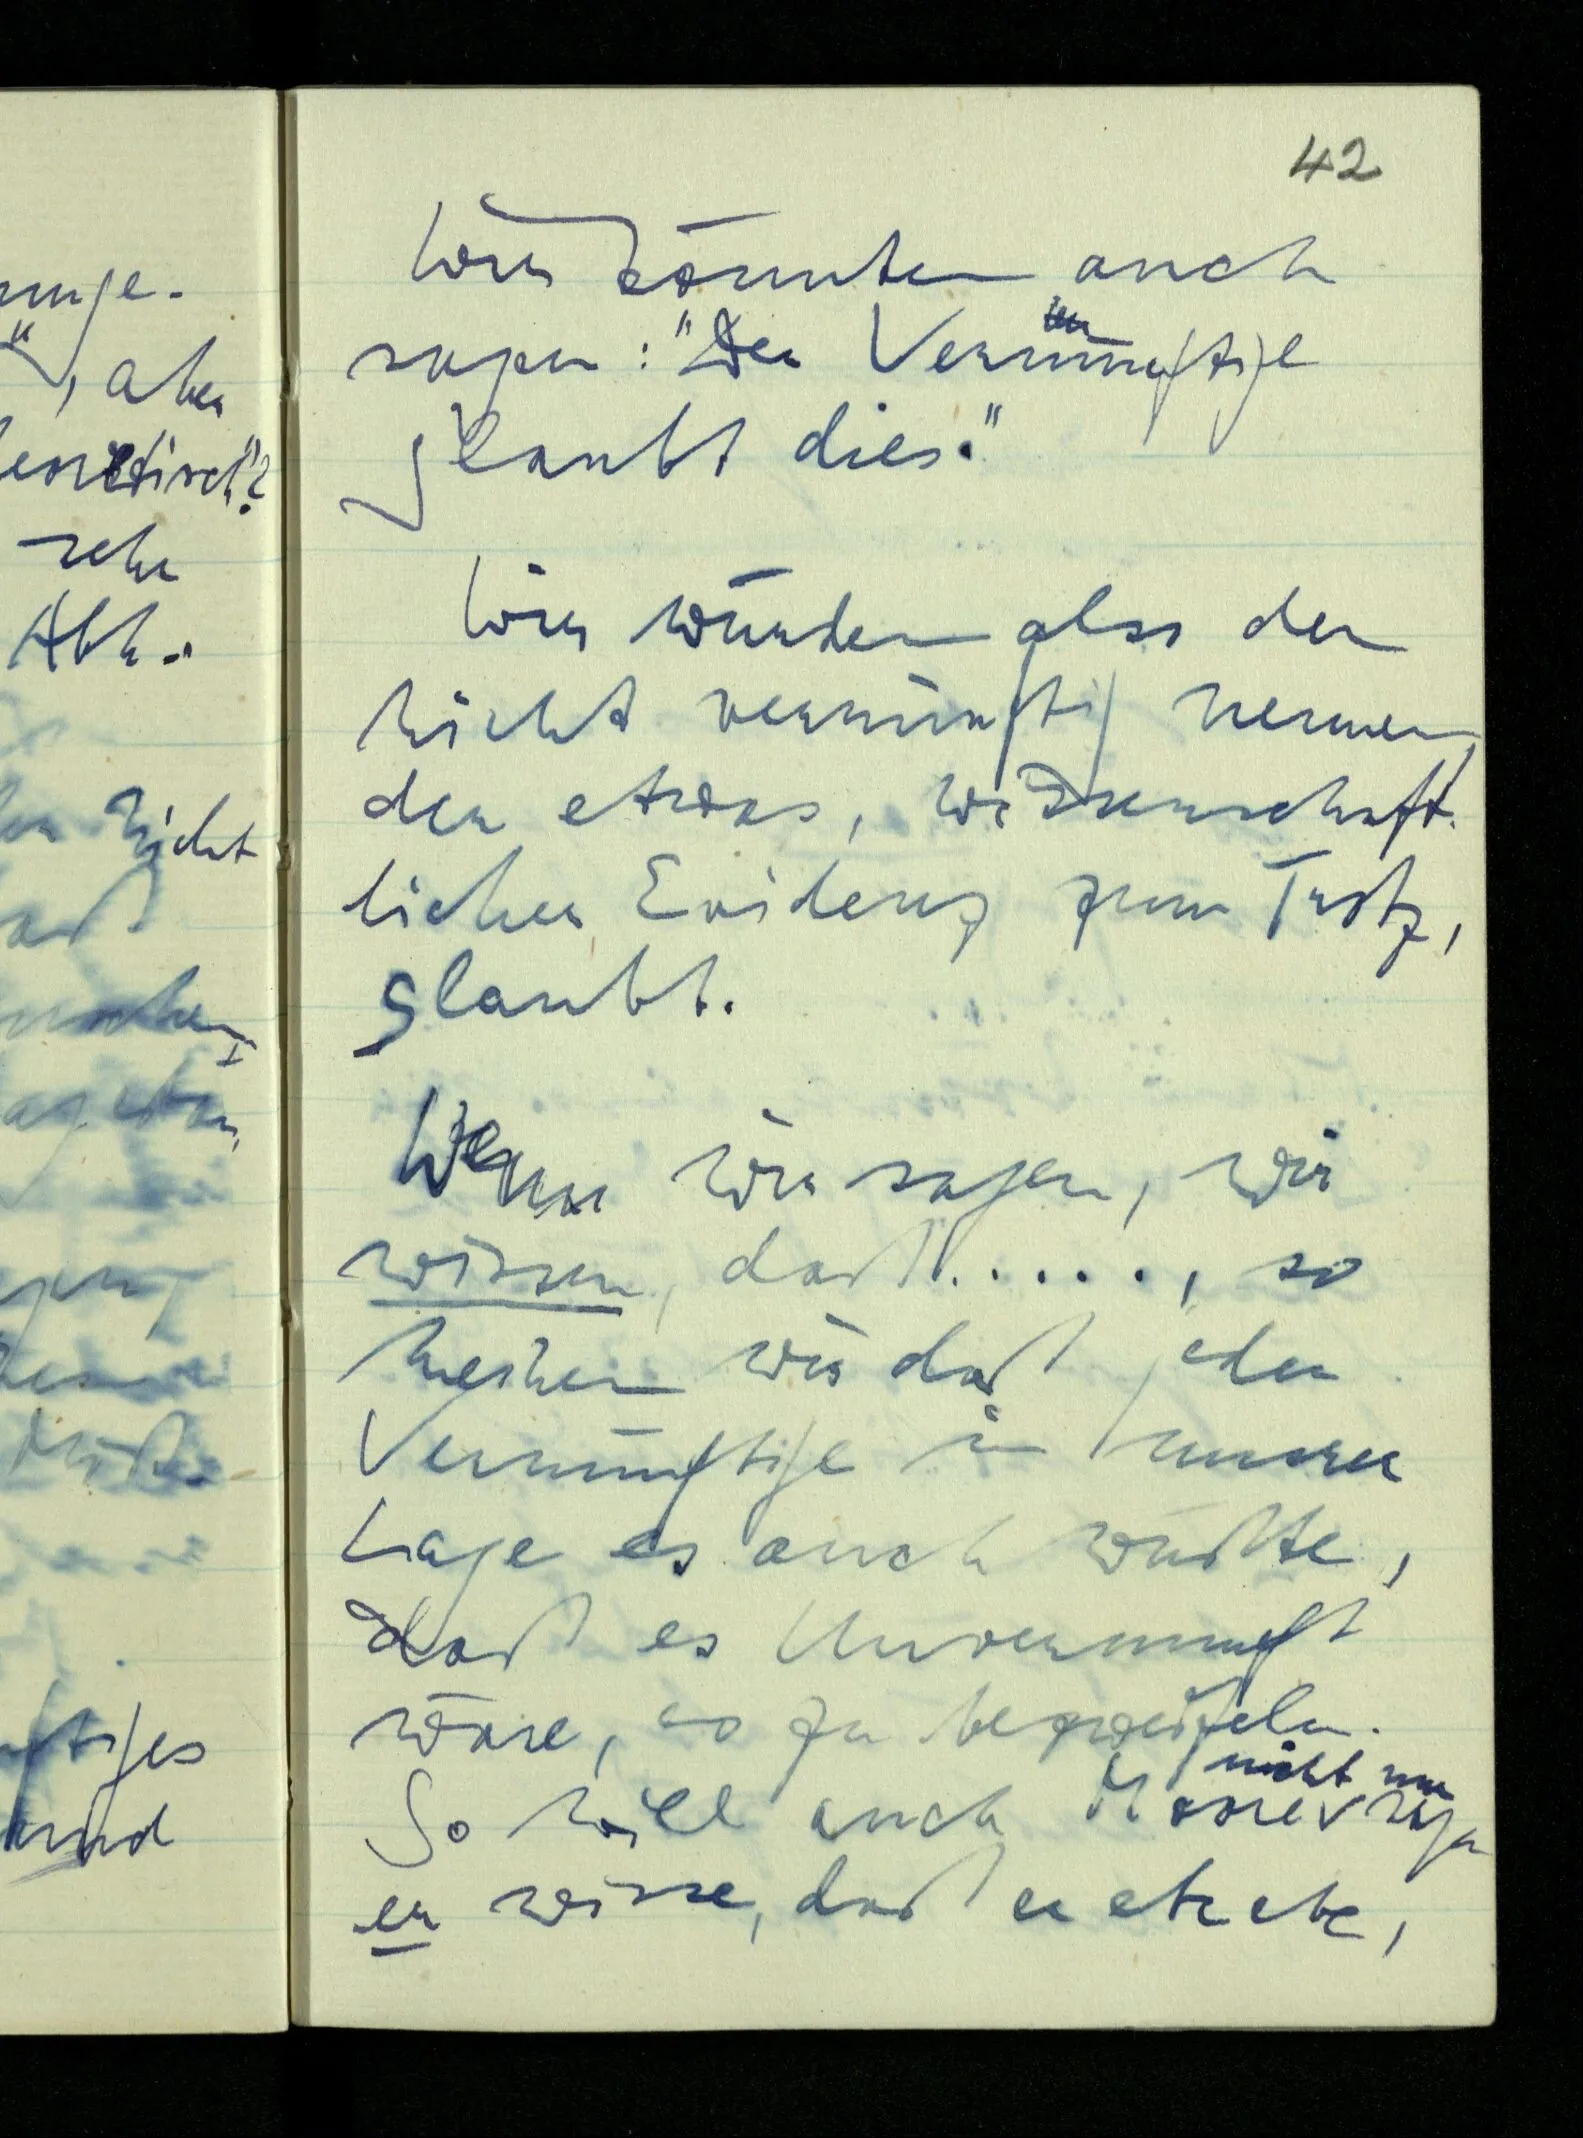 unge.
", aber
eoretisch"?
sehr
Abh..
nicht
ftiges
und
42
Wir könnten auch
sagen: "Der Vernünftige
glaubt dies."
Wir würden also den
nicht vernünftig nennen,
der etwas, wissenschaft-
licher Evidenz zum Trotz,
glaubt.
Wenn wir sagen, wir
wissen, daß ....., so
meinen wir daß jeder
Vernünftige in unserer
Lage es auch wüßte,
daß es Unvernunft
wäre, es zu bezweifeln.
So will auch Moore nicht nur sagen
er wisse, daß er etc etc,